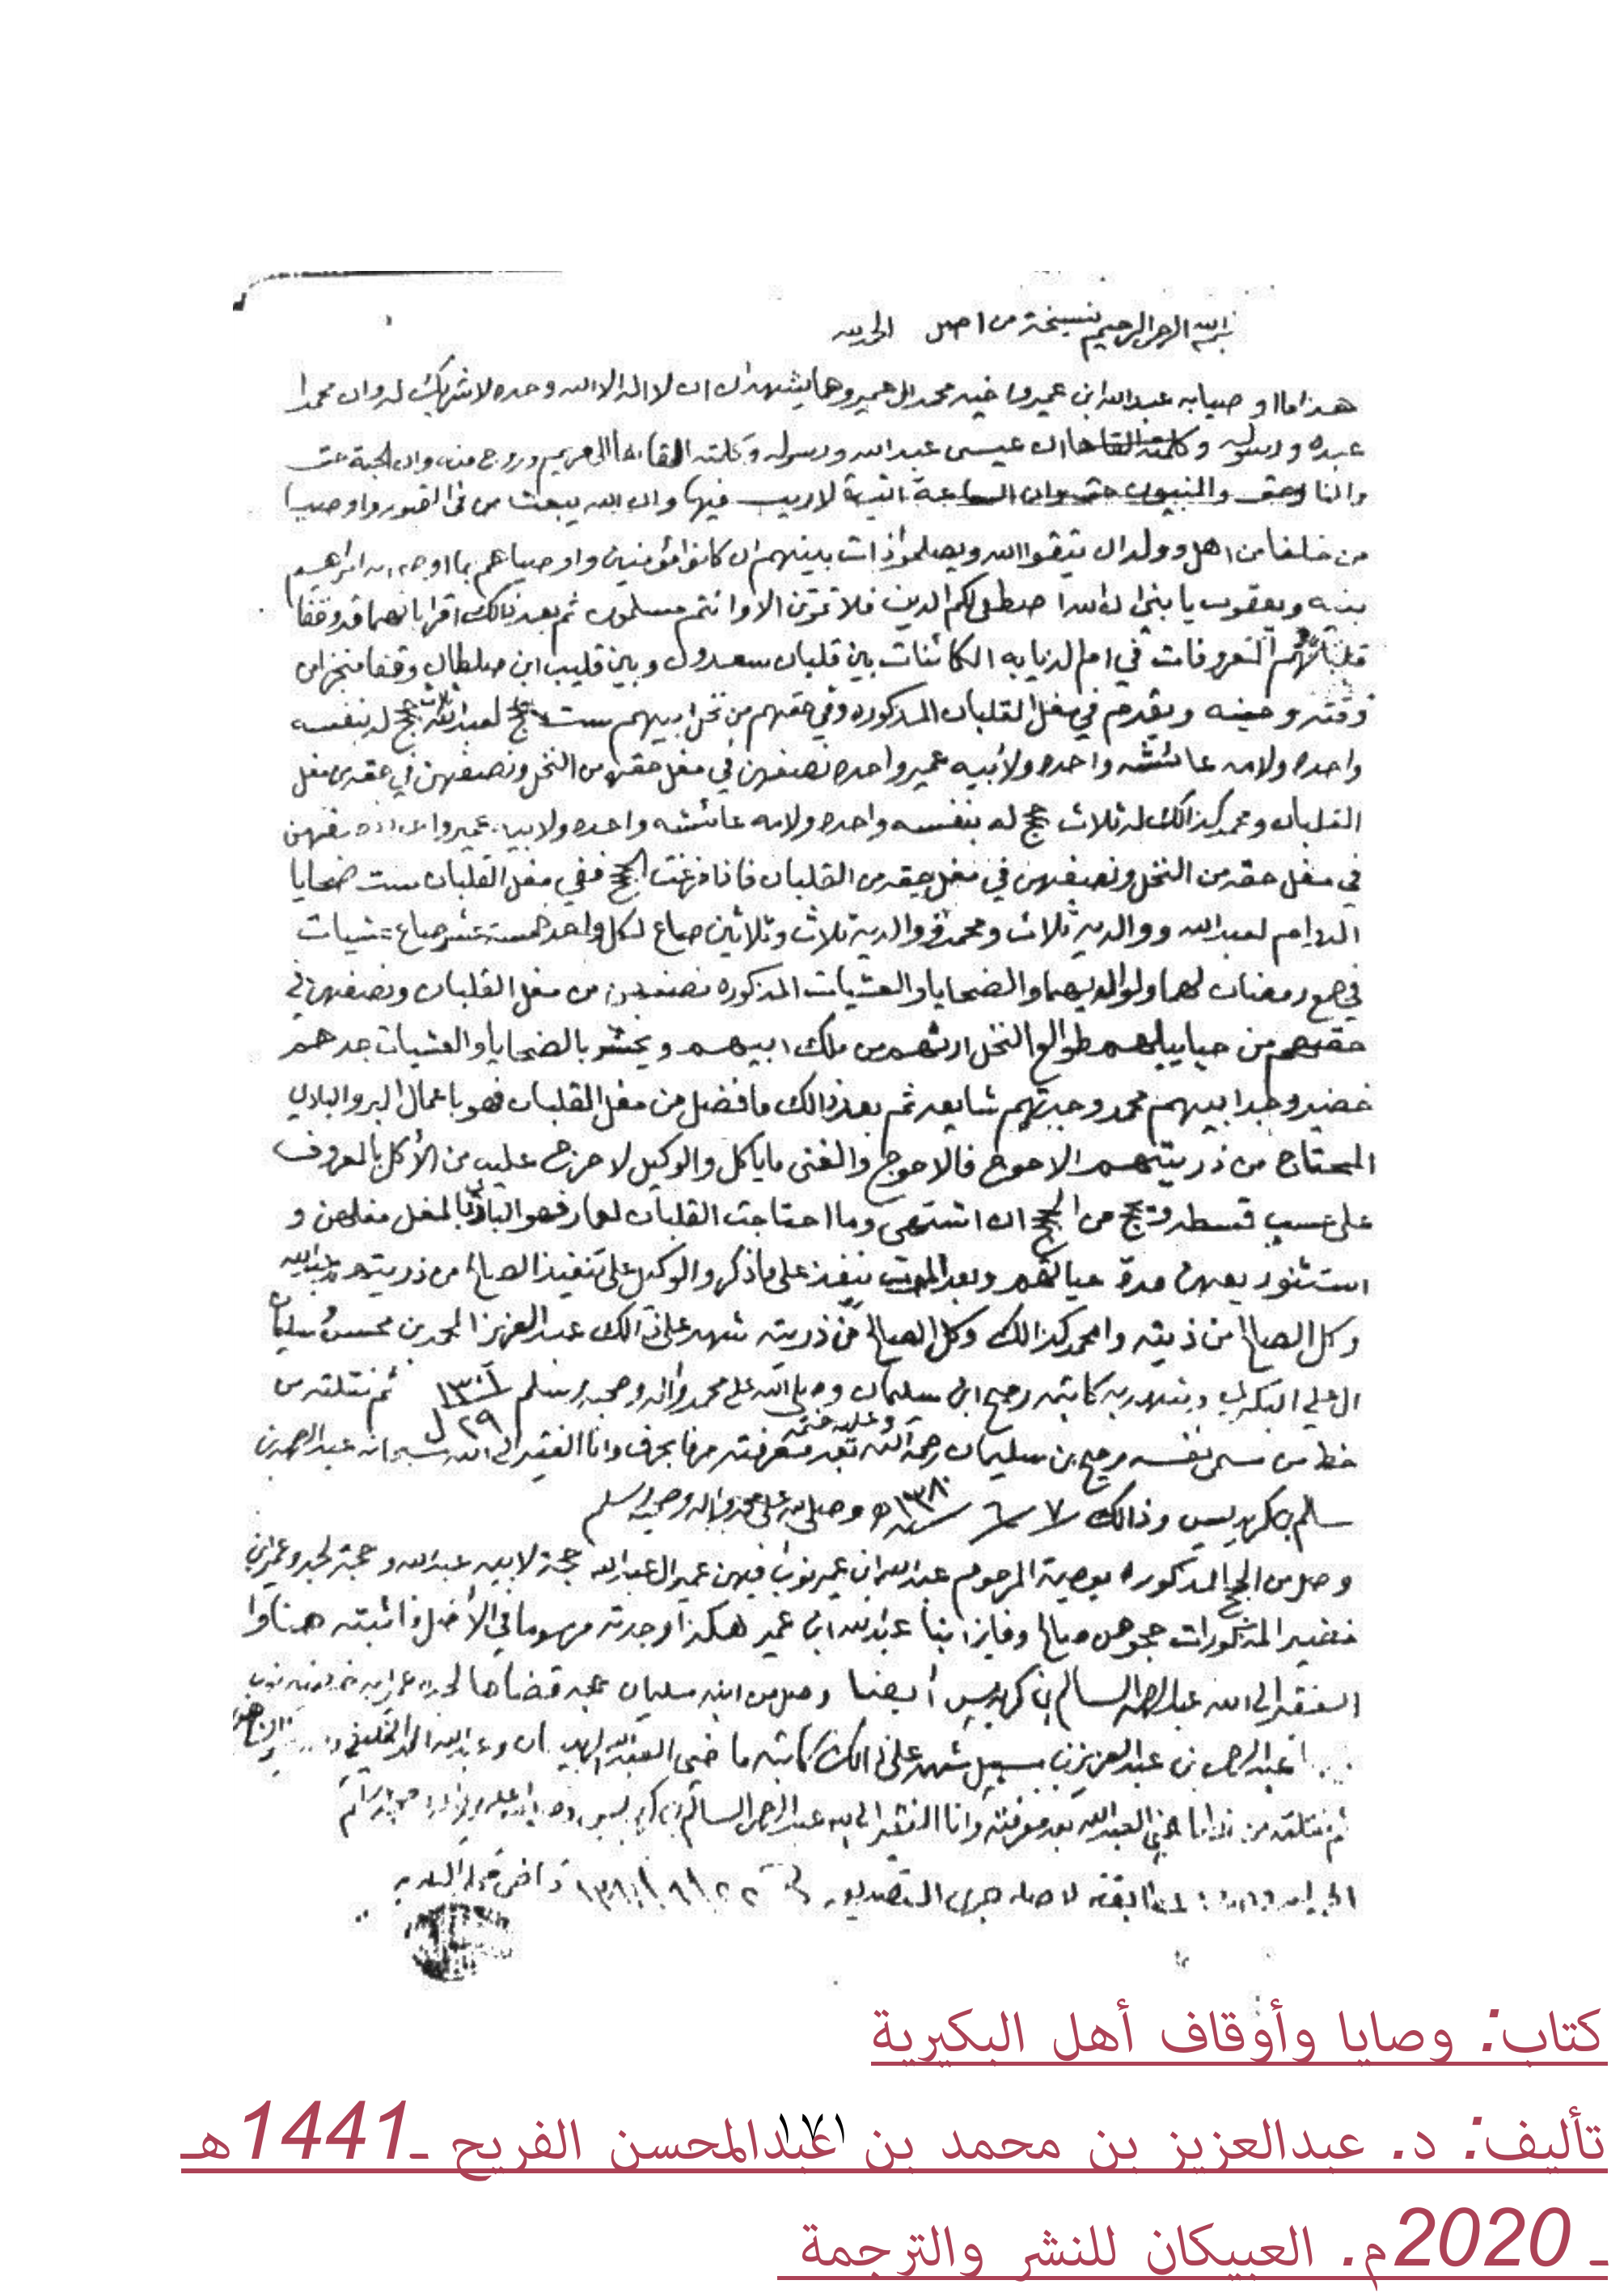 بسم الله الرحمن الرحيم نسخة من اصل الحمد لله
هذا ما اوصيا به عبدالله ابن عمير واخيه محمد ال عمير وهما يشهدان ان لا اله الا الله وحده لا شريك له وان محمدا
عبده ورسوله وان عيسى عبدالله ورسوله وكلمته القاها الى مريم وروح منه وان الجنة حق
والنار حق والنبيون حق وان الساعة اتية لا ريب فيها وان الله يبعث من في القبور واوصيا
من خلفا من اهل وولد ان يتقوا الله ويصلحوا ذات بينهم ان كانوا مؤمنين واوصياهم بما اوصى به ابراهيم
بنيه ويعقوب يا بني ان الله اصطفى لكم الدين فلا تموتن الا وانتم مسلمون ثم بعد ذالك اقرا بانهما قد وقفا
المعروفات في ام الدبابه الكائنات بين قلبان سعدون وبين قليب ابن سلطان وقفا منجزا من
وقته وحينه ويقدم في مغل القلبان المذكوره وفي حقهم من نخل ابيهم ست حجج لعبدالله ثلاث حجج له بنفسه
واحده ولامه عائشه واحده ولأبيه عمير واحده نصفهن في مغل حقه من النخل ونصفهن في حقه من مغل
القلبان ومحمد كذالك له ثلاث حجج له بنفسه واحده ولامه عائشه واحده ولابيه عمير واحده نصفهن
في مغل حقه من النخل ونصفهن في مغل حقه من القلبان فاذا فرغت الحجج ففي مغل القلبان ست ضحايا
الدوام لعبدالله ووالديه ثلاث ومحمد ووالديه ثلاث وثلاثين صاع لكل واحد خمسة عشر صاع عشيات
في جمع رمضان لهما ولوالديهما والضحايا والعشيات المذكوره نصفهن من مغل القلبان ونصفهن في
حقهم من طوالع النخل ارثهم من ملك ابيهم ويحشر بالضحايا والعشيات جدهم
خضير وجد ابيهم محمد وجدتهم شايعه ثم بعد ذالك ما فضل من مغل القلبان فهو باعمال البر والبادي
المحتاج من ذريتهم الاحوج فالاحوج والغني ما ياكل والوكيل لا حرج عليه من الأكل بالمعروف
على حسب قسطه من الحجج ان اشتهى وما احتاجت القلبان لعمار فهو البادي بالمغل مغلهن و
استثنو ريعهن مدة حياتهم وبعد الموت ينفذ على ما ذكر والوكيل على تنفيذ الصالح من ذريتهم عبدالله
وكل الصالح من ذريته ومحمد كذالك وكل الصالح من ذريته شهد على ذالك عبدالعزيز الحمد بن محسن وسليمان
العلي البكري وشهد به كاتبه رميح ابن سليمان وصلى الله على محمد واله وصحبه وسلم ١٣٠١ ٢٩ ل ثم نقلته من
خط من سمى نفسه رميح بن سليمان رحمه الله وعليه ختمه بعد معرفته حرفا بحرف وانا الفقير الى الله سبحانه عبدالرحمن بن
سالم بن كريديس وذالك ٧ / ٦ / سنة ١٣٨٠ه وصلى الله على محمد واله وصحبه وسلم
وصل من الحجج المذكوره بوصية المرحوم عبدالله ابن عمير نوب فيهن عمير العبدالله حجة لابيه عبدالله وحجة لجده عمير بن
خضير المذكورات حجوهن صالح وفايز ابنا عبدالله ابن عمير هكذا وجدته مرسوما في الأصل فاثبته هنا وانا
الفقير الى الله عبدالرحمن السالم بن كريديس أيضا وصل من ابنه سليمان حجه قضاها
عبدالرحمن بن عبدالعزيز بن سبيل شهد على ذالك كاتبه
ثم نقلته من بعد معرفته وانا الفقير الى الله عبدالرحمن السالم بن كريديس
لاصله جرى التصديق في ٢٢/٩/
كتاب: وصايا وأوقاف أهل البكيرية
١٧١
تأليف: د. عبدالعزيز بن محمد بن عبدالمحسن الفريح ـ1441هـ
ـ 2020م. العبيكان للنشر والترجمة